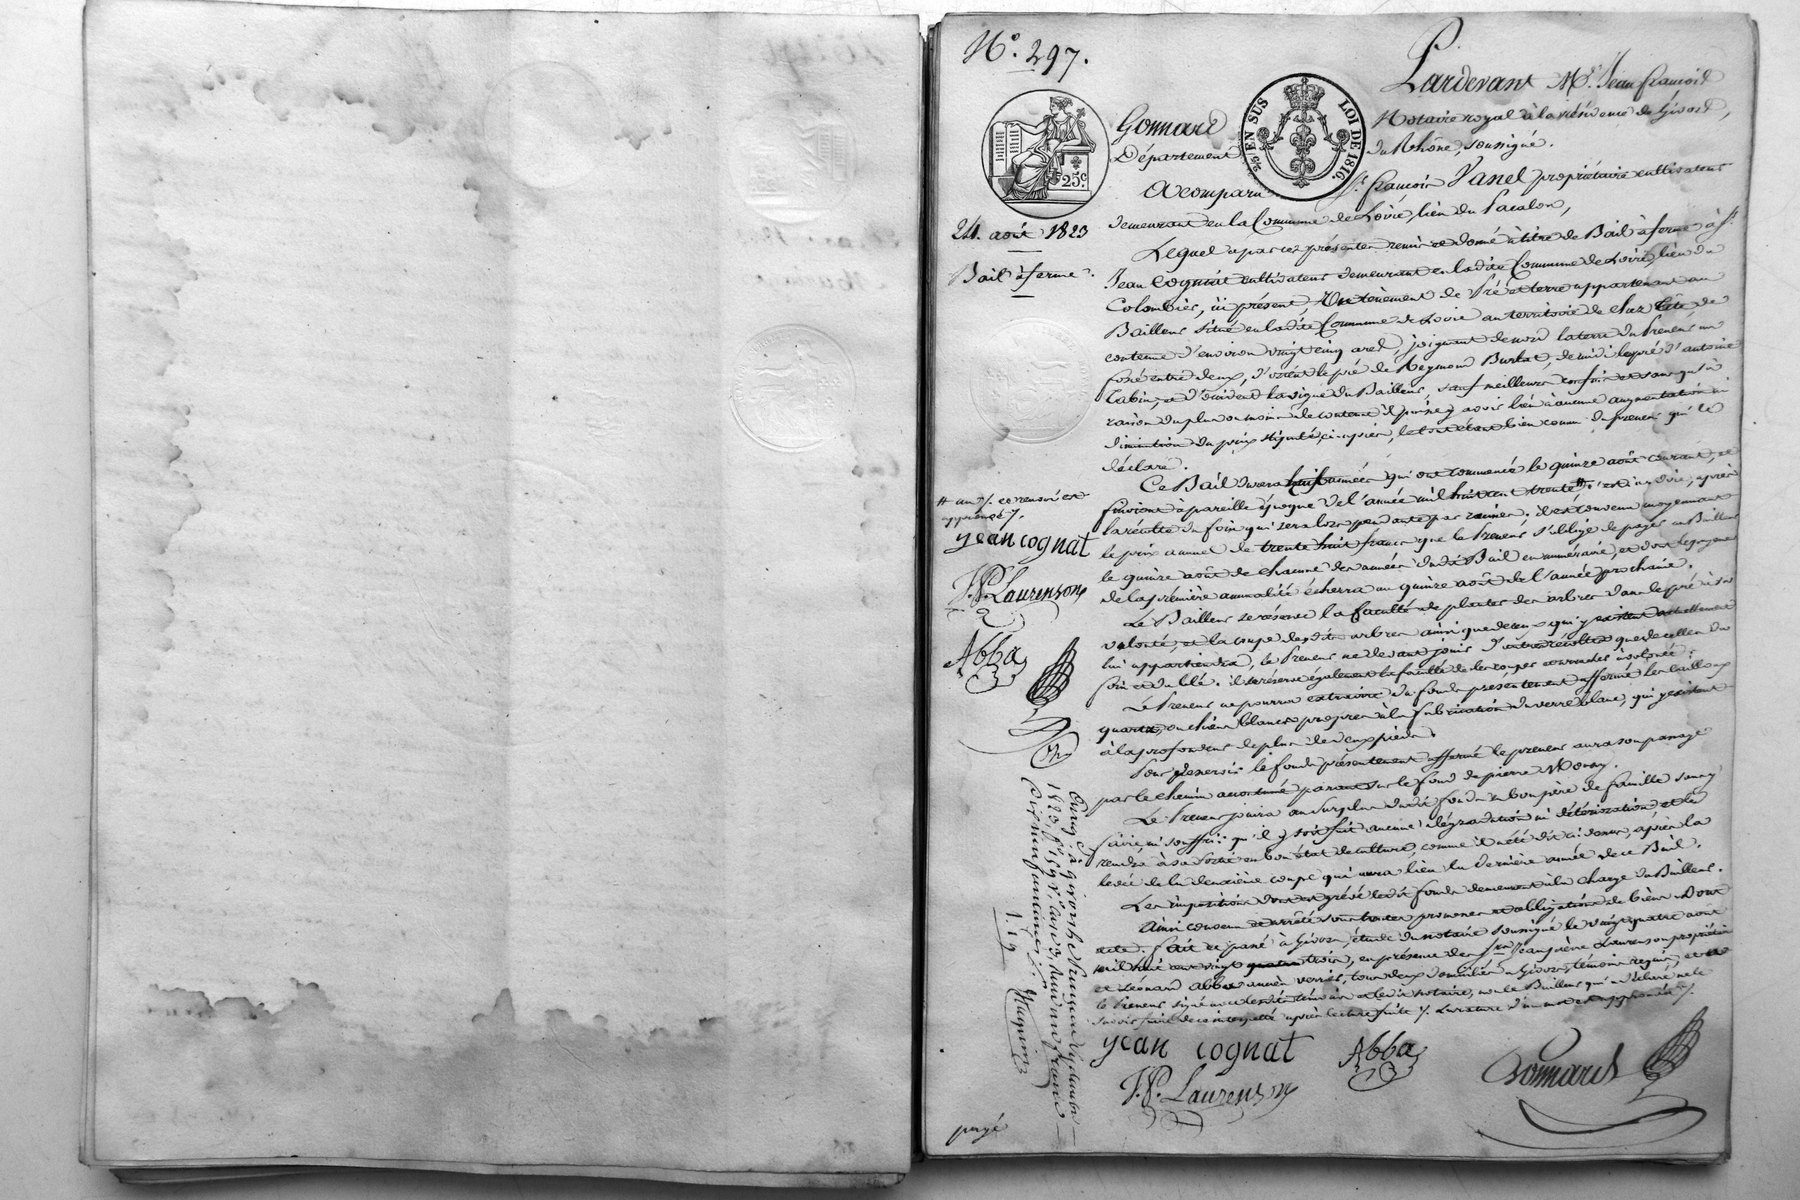 N.° 297.
Pardevant M.e Jean François
Gonnard
Notaire royal à la résidence de Givors,
Département
du Rhône, soussigné.
25 EN SUS
LOI DE 1816.
25c
A comparu
S.r François Vanel propriétaire cultivateur
demeurant en la Commune de Loire, lieu du Pacalon,
24. août 1823
Bail à ferme.
Lequel a par ces présentes remis et donné à titre de Bail à ferme à S.r
Jean Cognat cultivateur demeurant en ladite Commune de Loire, lieu du
Colombier, ici présent, Un tènement de Pré et terre appartenant au
Bailleur situé en ladite Commune de Loire au territoire de chez
contenue d'environ vingt cinq ares, joignant de nord la terre du Preneur un
fossé entre deux, d'orient le pré de Reymond Burlat, de midi le pré d'antoine
Cabin, et d'occident la vigne du Bailleur, sauf meilleurs confins et sans qu'à
raison du plus ou moins de contenue il puisse y avoir lieu à aucune augmentation ni
diminution du prix stipulé ci-après, le tout étant bien connu du preneur qui le
déclare.
Ce Bail durera huit années qui ont commencé le quinze août courant, et
finiront à pareille époque de l'année mil huit cent trente # c'est-à-dire, après
la récolte du foin qui sera lors pendante par racines. il est convenu moyennant
le prix annuel de trente huit francs que le Preneur s'oblige de payer au Bailleur
le quinze août de chacune des années dudit Bail en numéraire, et dont le payement
de la première annualité écherra au quinze août de l'année prochaine.
# un /. ce renvoi est
approuvé /.
jean cognat
J.P. Laurenson
Abba
Le Bailleur se réserve la faculté de planter des arbres dans le pré à sa
volonté, et la coupe desdits arbres ainsi que de ceux qui y existent actuellement
lui appartiendra, le Preneur ne devant jouir d'autres récoltes que de celles du
foin et du blé. il se réserve également la faculté de les couper et arracher à volonté.
Le Preneur ne pourra extraire du fonds présentement affermé les cailloux
quartz, ou chiens blancs propres à la fabrication du verre blanc, qui y existent
à la profondeur de plus de deux pieds.
Pour desservir le fonds présentement affermé le preneur aura son passage
par le chemin accoutumé passant sur le fond de pierre Monay.
Le Preneur jouira au surplus dudit fonds en bon père de famille sans y
faire, ni souffrir qu'il y soit fait aucune dégradation ni détérioration et le
rendra à sa sortie en bon état de culture, comme il a été dit ci-dessus, après la
levée de la deuxième coupe qui aura lieu la dernière année de ce Bail.
Les impositions dont est grévé ledit fonds demeurent à la charge du Bailleur.
Ainsi convenu et arrêté sous toutes promesses et obligations de biens. Dont
acte. fait et passé à Givors, étude du notaire soussigné le vingt quatre août
mil huit cent vingt quatre trois, en présence de Srs. Jean pierre Laurenson propriétaire
et Léonard Abba ancien verrier, tous deux domiciliés à Givors, témoins requis, et a
le Preneur signé avec lesdits témoins et ledit notaire, non le Bailleur qui a déclaré ne le
savoir faire de ce interpellé après lecture faite /. La rature d'un mot est approuvée /.
jean cognat
Abba
J.P. Laurenson
Gonnard
1823, f.°
payé